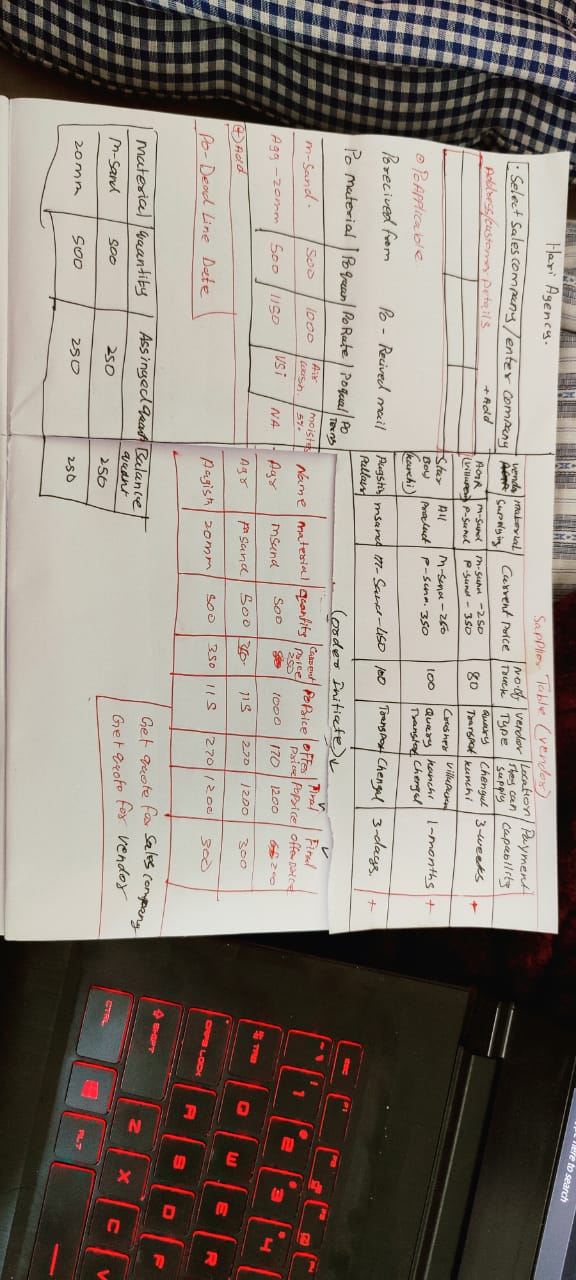 Hari Agency.
. Select Sales company/enter company
Address/customer Details + Add
PO Applicable
PO recived from PO - Recived mail
PO material PO quan PO Rate PO qual PO Terms
m-Sand. 500 1000 Air wash. moister 5%
Agg - 20mm 500 1150 VSI NA
+ Add
PO - Dead Line Date
material quantity Assinged quant Balance quant
m-Sand 500 250 250
20mm 500 250 250
Supplier Table (vendor)
vendor material Supplying Current Price No. of Truck vendor Type Location They can Supply Payment capability
AGR m-sand P-sand m-sand - 250 P-sand - 350 80 Quary Transpot Chengal kanchi 3-weeks +
Star Bow (kanchi) All Product m-sand - 260 P-san. 350 100 Crusher Quary Transpot Villupuram kanchi Chengal 1-months +
msand m-Sand-450 100 Transpot Chengal 3-days. +
(order Initiate)
Name material quantity Current Price PO Price offer Price Final PO Price Final offer price
Agr msand 500 250 1000 170 1200 200
Agr Psand 500 350 115 270 1200 300
Aagish 20mm 500 350 115 270 1200 300
Get quote for Sales company
Get quote for vendor
ype here to search
esc F1 F2 F3
~ ` ! 1 @ 2 # 3 $ 4
TAB Q W E R
CAPS LOCK A S D F
SHIFT Z X C
CTRL ALT